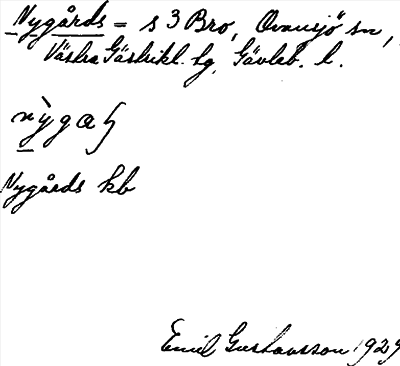 Nygårds = s 3 Bro, Ovansjö sn,
Västra Gästrikl. hg, Gävleb. l.
nỳgaꞩ
Nygårds kb
Emil Gustavsson 1929